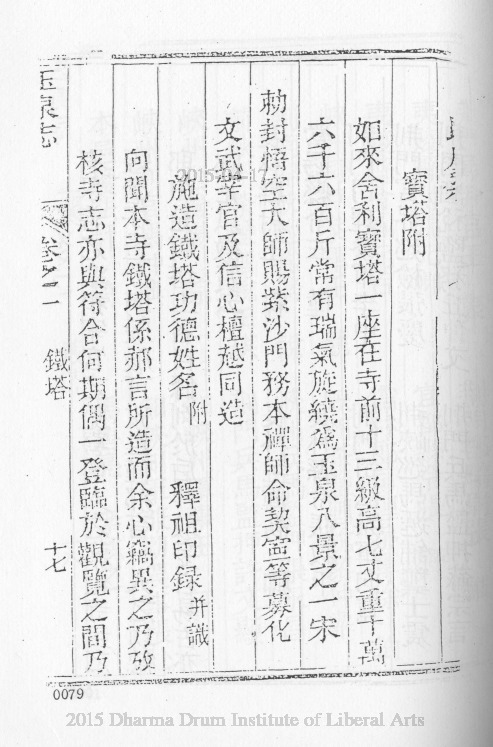 寶塔附
如來舍利寶塔一座在寺前十三級高七丈重十萬
六千六百斤常有瑞氣旋繞爲玉泉八景之一宋
勅封悟空大師賜紫沙門務本禪師命契宻等募化
文武宰官及信心檀越同造
施造鐵塔功德姓名附 釋祖印録并識
向聞本寺鐵塔係郝言所造而余心竊異之乃攷
核寺志亦與符合何期偶一登臨於觀覽之間乃
玉泉志 卷之一 鐵塔 十七
0079
2015 Dharma Drum Institute of Liberal Arts